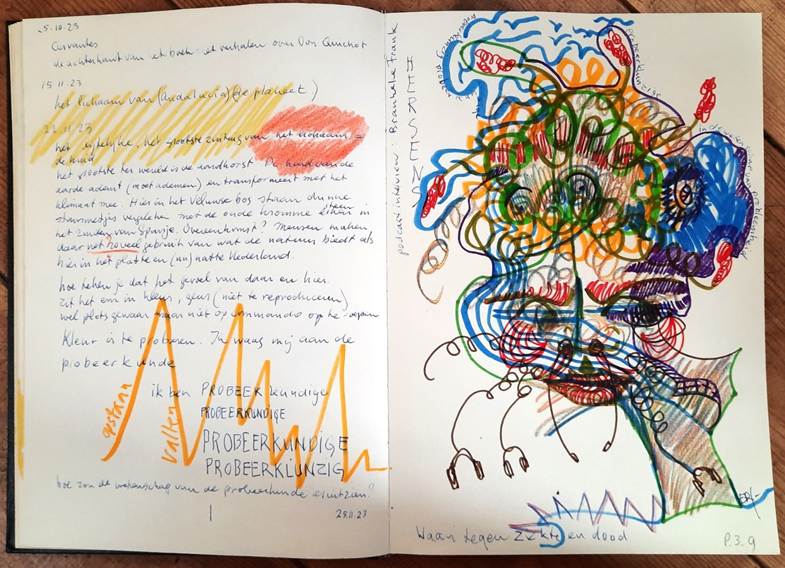 25.10.23
Cervantes
de achterkant van et boek: et verhalen over Don
15.11.23
het lichaam van
22.11.23
het grootste zintuig van het lichaam =
de huid
het grootste ter wereld is de aardkorst. De huid van de
aarde ademt (moet ademen) en transformeert met het
klimaat mee. Hier in het Veluwse bos staan dunne
stammetjes vergeleken met de oude kromme in
het zuiden van Spanje. Overeenkomst? Mensen maken
daar net zoveel gebruik van wat de natuur biedt als
hier in het platte en (nu) natte Nederland.
hoe teken je dat het gevoel van daar en hier.
zit het em in kleur, geur (niet te reproduceren)
wel plots gewaar maar niet op commando op te roepen
Kleur is te proberen. Ik waag mij aan de
probeerkunde
gestaan
vallen
ik ben PROBEERkundige
PROBEERKUNDIGE
PROBEERKUNDIGE
PROBEERKUNZIG
hoe zou de wetenschap van de probeerkunde eruitzien?
29.11.23
podcast interview: Brankele Frank
HERSENS
Waan tegen Ziekte en dood
P.3.9